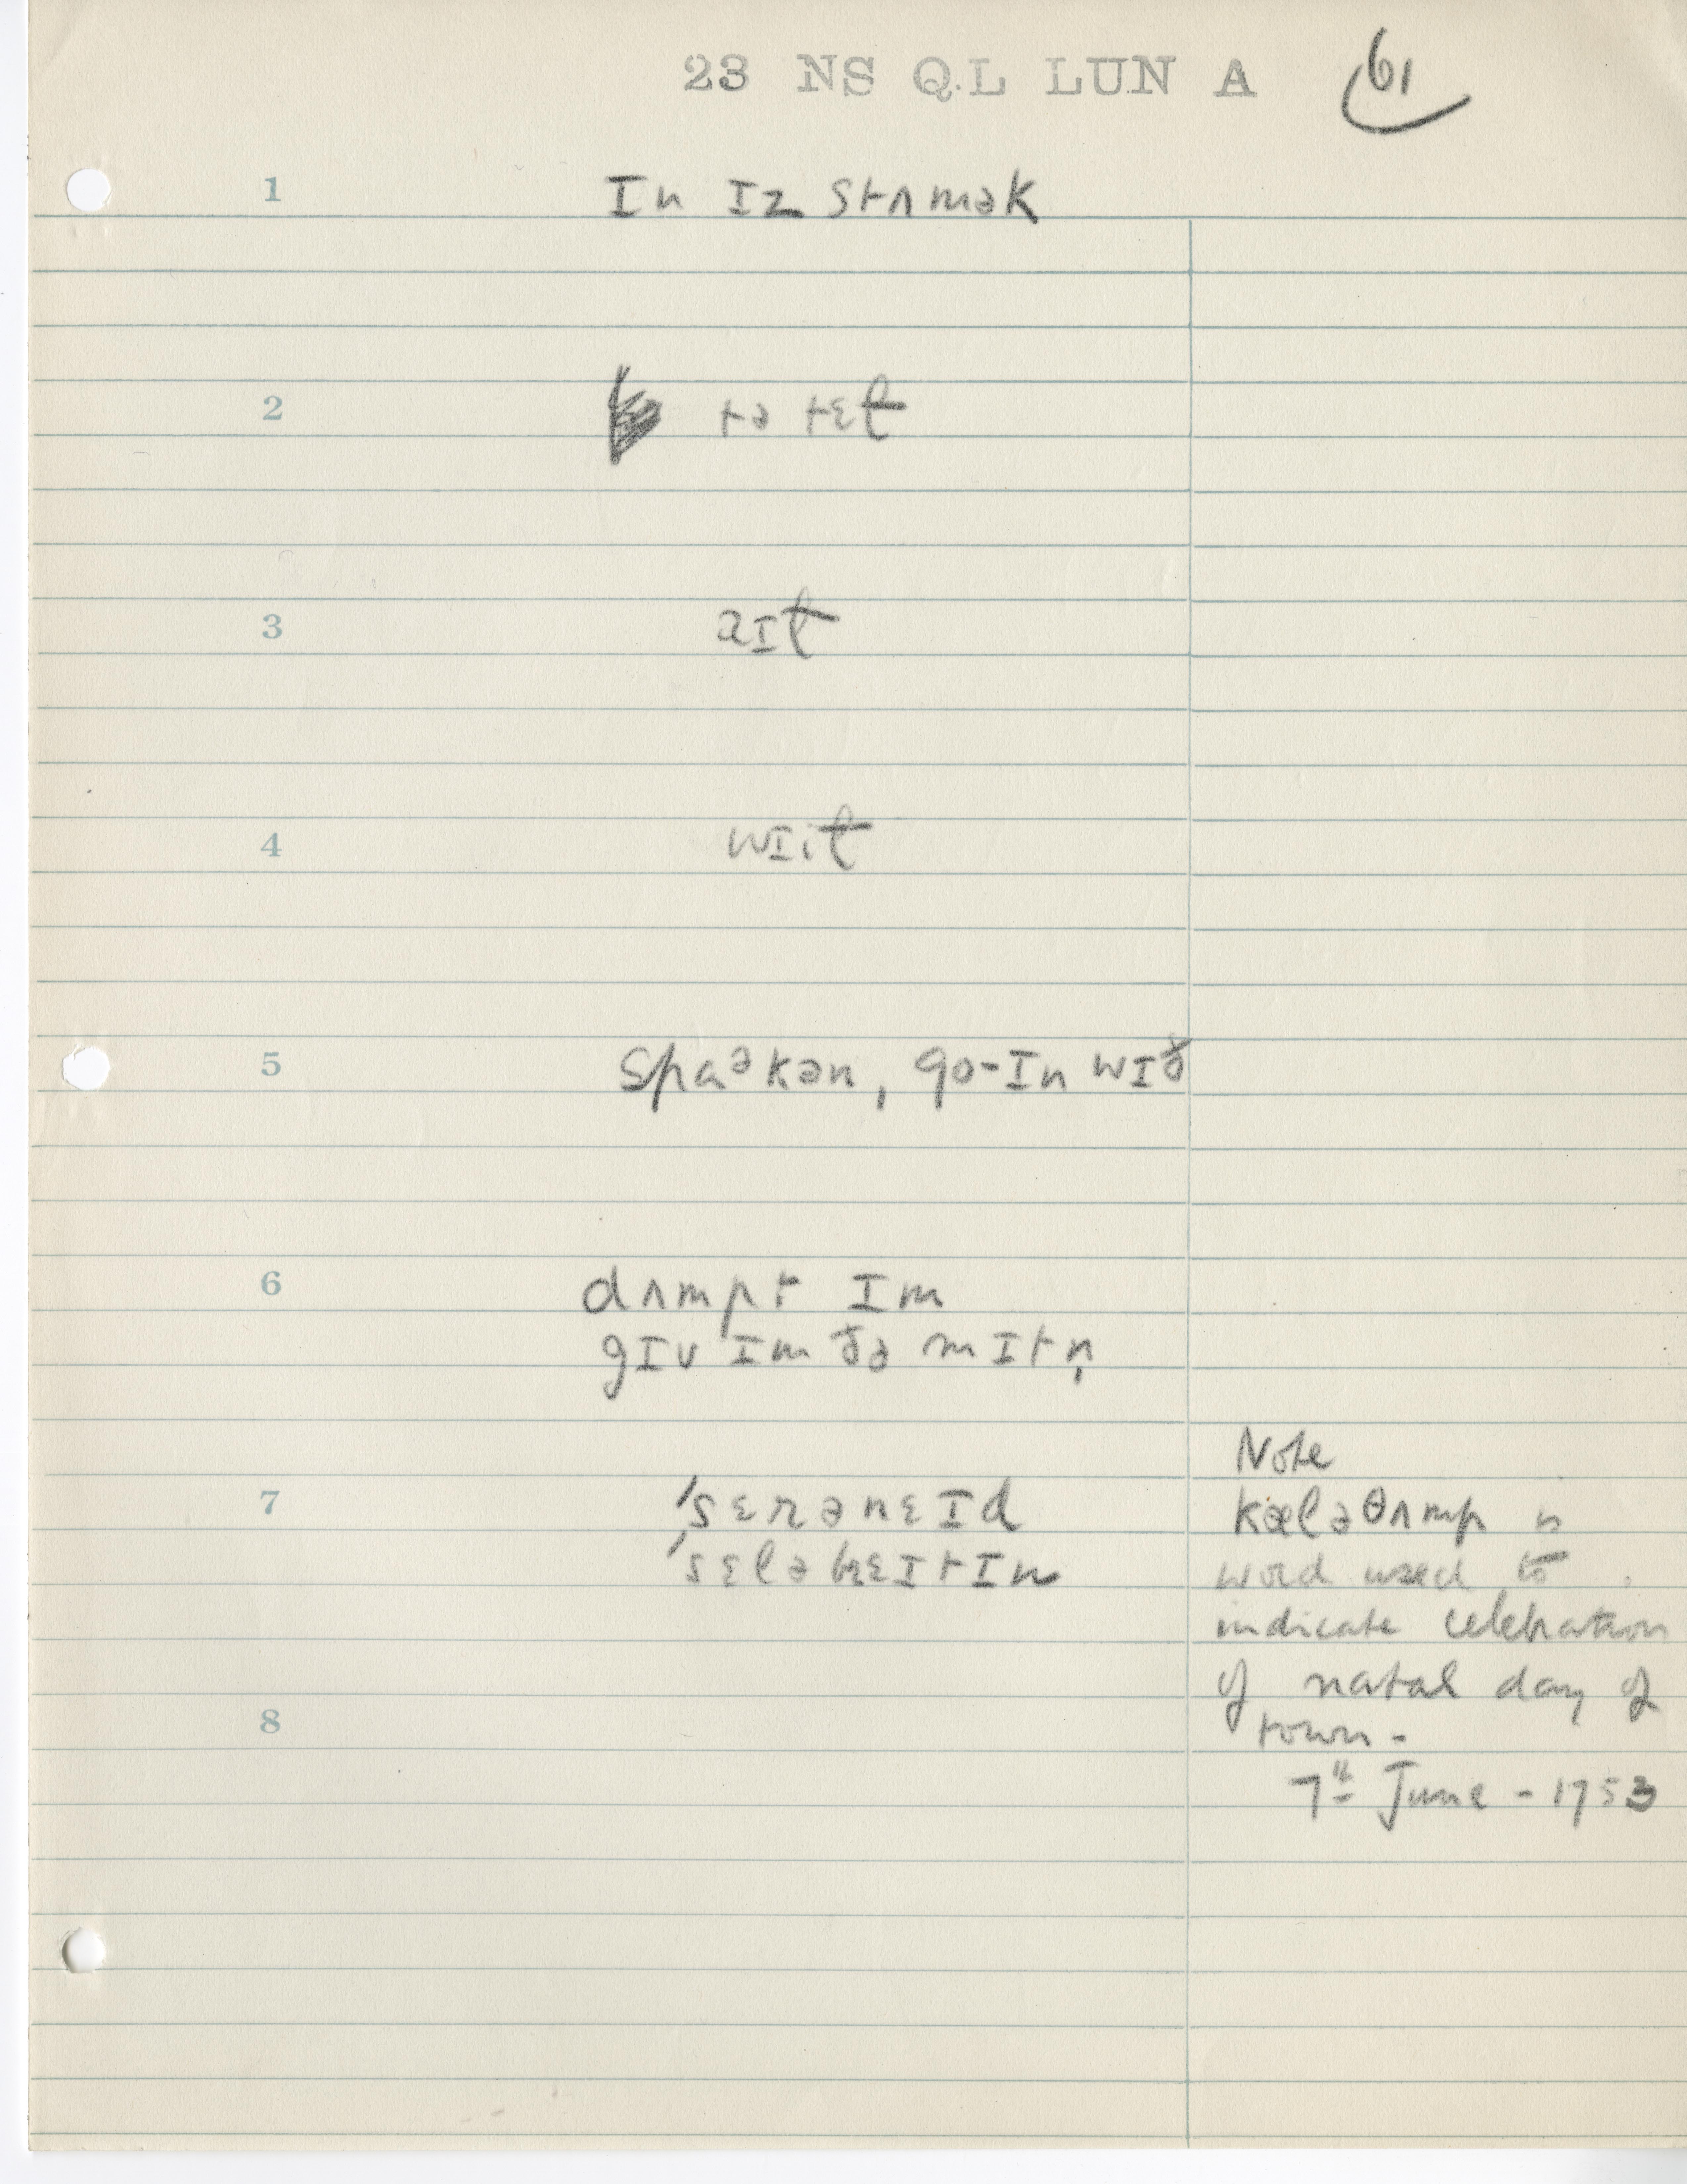 23 NS QL LUN A 61
1 ɪn ɪz stʌmək
2 tə tɛɫ
3 aɪɫ
4 wɪiɫ
5 spaᵊkən, go-ɪn wɪð
6 dʌmpt ɪm
gɪv ɪm ðə mɪtn̩
7 'sɛrəneɪd
'sɛləbrɛɪtɪn
8
Note
kæləθʌmp is
word used to
indicate celebration
of natal day of
town -
7th June - 1753